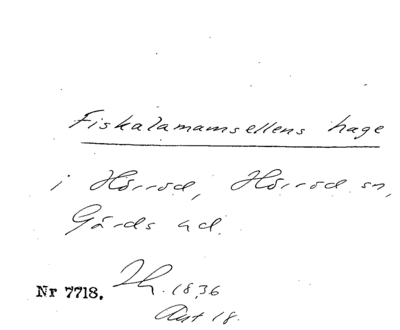 Fiskalamamsellens hage
i Hörröd, Hörröd sn,
Gärds hd.
Nr 7718. Lh. 1836
Akt 18.